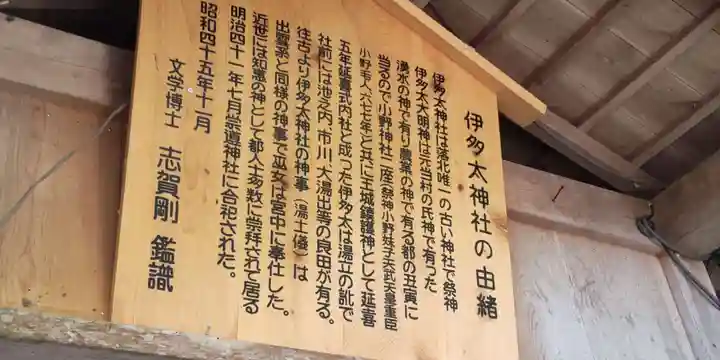 伊多太神社の由緒
伊多太神社は洛北唯一の古い神社で祭神
伊多太大明神は元当村の氏神で有った
湧水の神で有り農業の神で有る都の丑寅に
当るので小野神社二座(祭神小野妹子天武天皇重臣
小野毛人六七七年)と共に王城鎮護神として延喜
五年延喜式内社と成った伊多太は湯立の訛で
社前には池之内、市川、大湯出等の良田が有る。
往古より伊多太神社の神事(湯土儀)は
出雲系と同様の神事で巫女は宮中に奉仕した。
近世には知恵の神として都人士多数に崇拝されて居る
明治四十一年七月崇道神社に合祀された。
昭和四十五年十一月
文学博士 志賀剛 鑑識